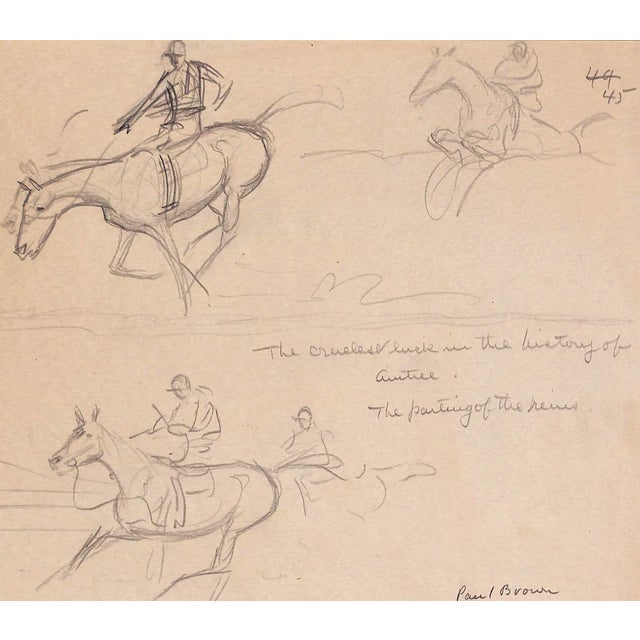 44
45
The cruelest luck in the history of
aintree.
The parting of the reins
Paul Brown